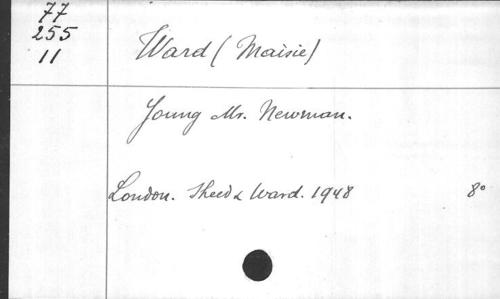 77
255
11
Ward (Maisie)
Young Mr. Newman.
London. Sheed & Ward. 1948 8°